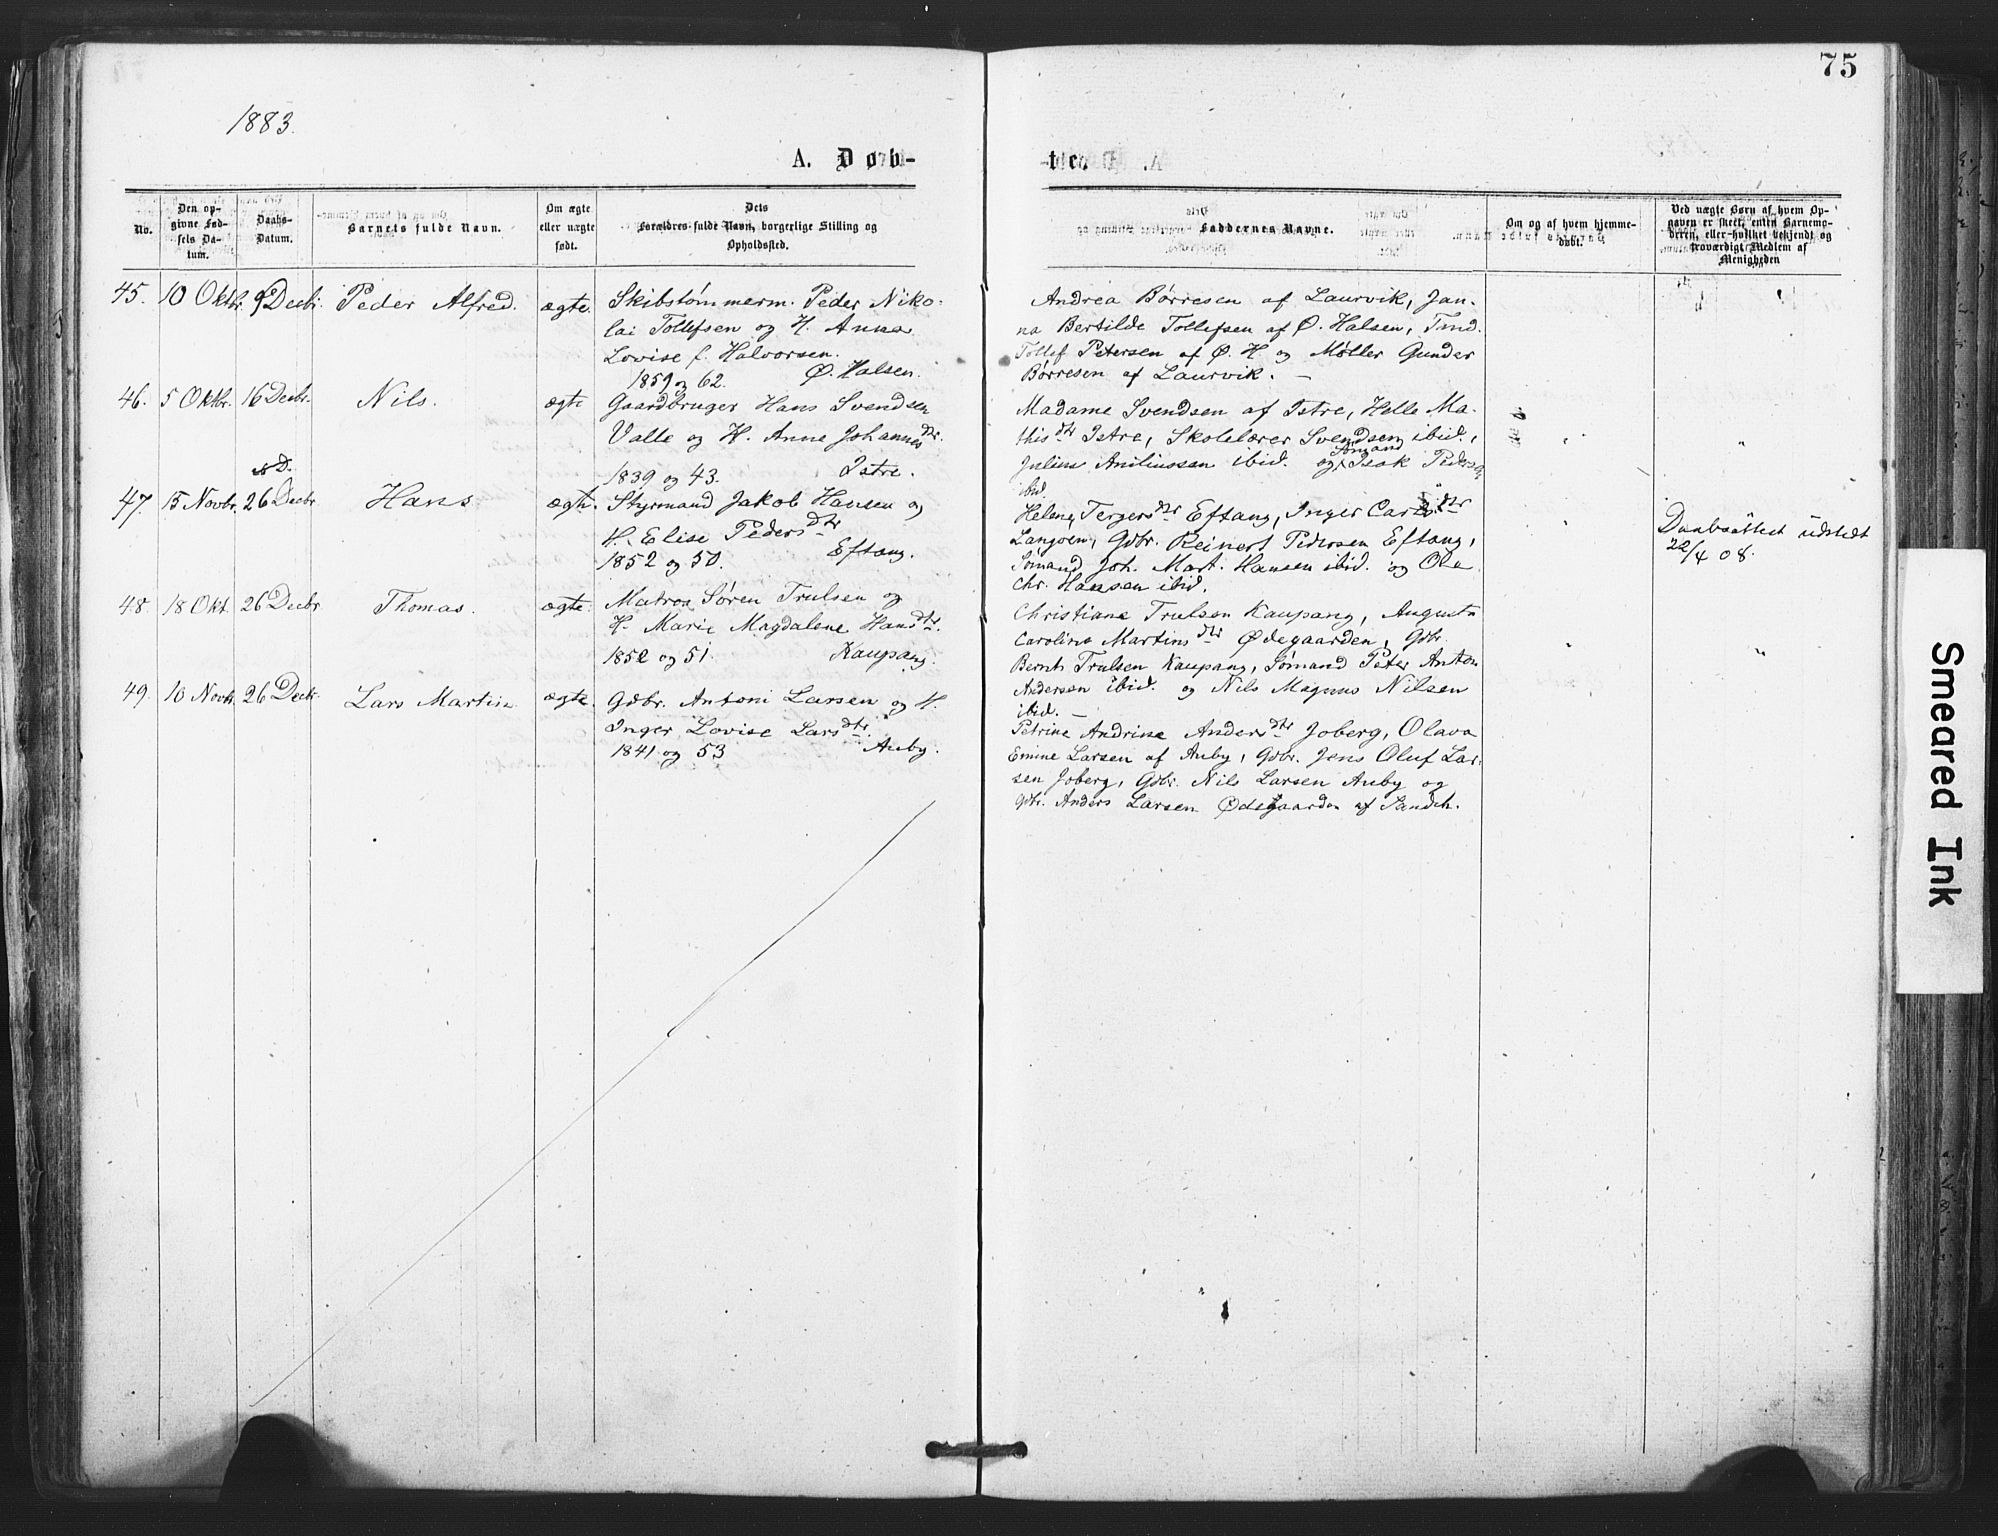 75
1883.
A. Døb-
te.
No.
Den op-
givne Fød-
sels Da-
tum.
Daabs-
Datum.
Barnets fulde Navn.
Om ægte
eller uægte
født.
Dets
Forældres fulde Navn, borgerlige Stilling og
Opholdssted.
Faddernes Navne.
Om og af hvem hjemme-
døbt.
Ved uægte Børn af hvem Op-
gaven er skeet, enten Barnemo-
deren, eller hvilket bekjendt og
troværdigt Medlem af
Menigheden
45. 10 Oktbr. 9 Decbr. Peder Alfred. ægte.
Skibstømmerm. Peder Niko-
lai Tollefsen og H. Anna
Lovise f. Halvorsen.
1859 og 62. Ø. Halsen.
Andrea Børresen af Laurvik, Jan-
na Bertilde Tollefsen af Ø. Halsen,
Tollef Petersen af Ø. H og Møller Gunder
Børresen af Laurvik. —
46. 5 Oktbr. 16 Decbr. Nils. ægte
Gaardbruger Hans Svendsen
Valle og H. Anne Johannesdtr.
1839 og 43. Istre.
Madame Svendsen af Istre, Helle Ma-
thisdtr Istre, Skolelærer Svendsen ibid.,
Julius Aniliussen ibid. og Sømand Isak Peders
ibid.
47. 15 Novbr. 26 Decbr Hans ægte.
Styrmand Jakob Hansen og
H. Elise Pedersdtr
1852 og 50. Eftang.
Helene Tergersdtr Eftang, Inger Carlsdtr
Langoen, Gdbr. Reinert Pedersen Eftang,
Sømand Joh. Mart. Hansen ibid. og Ole
Chr. Hansen ibid.
Daabsattest udstedt
22/4 08.
48. 18 Okt. 26 Decbr Thomas. ægte.
Matros Søren Trulsen og
H. Marie Magdalene Hansdtr.
1852 og 51. Kaupang.
Christiane Trulsen Kaupang, Augusta
Caroline Martinsdtr Ødegaarden, Gdbr.
Bernt Trulsen Kaupang, Sømand Peter Anton
Andersen ibid. og Nils Magnus Nilsen
ibid. —
49. 10 Novbr. 26 Decbr. Lars Martin ægte.
Gdbr. Antoni Larsen og H.
Inger Lovise Larsdtr.
1841 og 53 Auby.
Petrine Andrine Andersdtr Joberg, Olava
Emine Larsen af Auby, Gdbr. Jens Oluf Lar-
sen Joberg, Gdbr. Nils Larsen Auby og
Gdbr. Anders Larsen Ødegaarden af Sandeh.
Smeared Ink